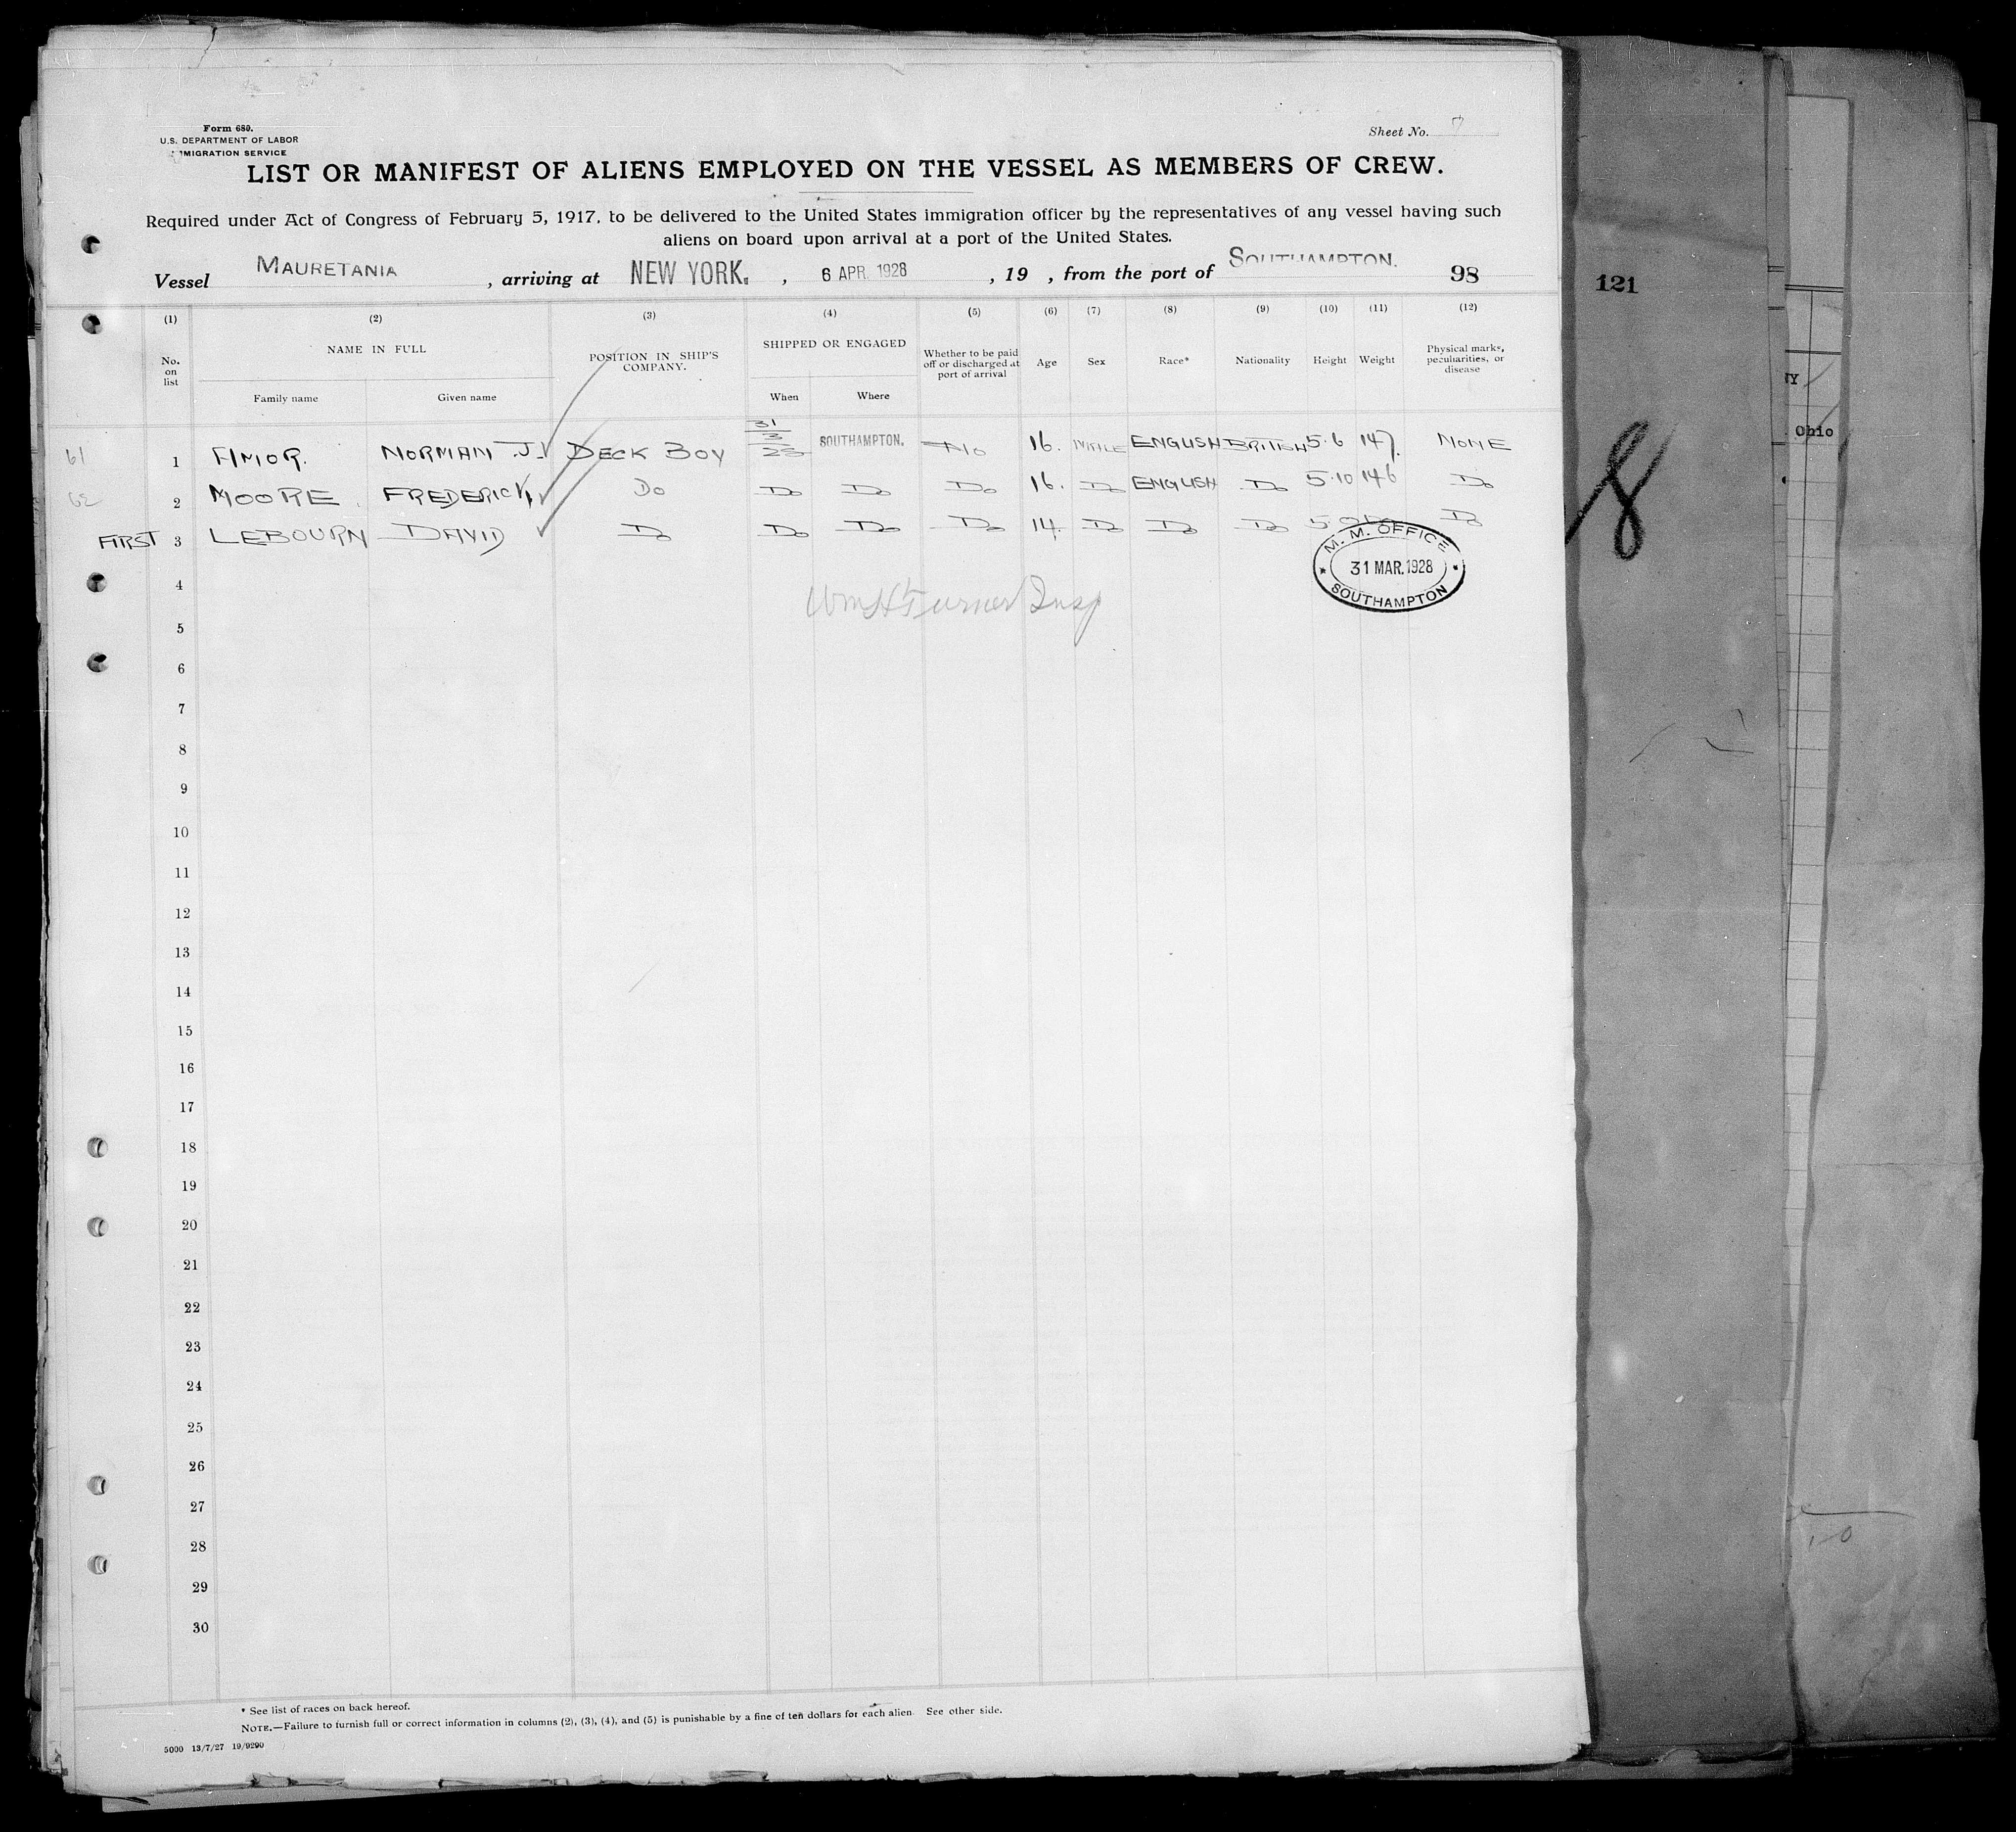 Form 680.
U.S. DEPARTMENT OF LABOR
IMMIGRATION SERVICE
Sheet No. 7
LIST OR MANIFEST OF ALIENS EMPLOYED ON THE VESSEL AS MEMBERS OF CREW.
Required under Act of Congress of February 5, 1917, to be delivered to the United States immigration officer by the representatives of any vessel having such
aliens on board upon arrival at a port of the United States.
Vessel MAURETANIA, arriving at NEW YORK., 6 APR. 1928, 19 , from the port of SOUTHAMPTON. 98
121
(1) (2) (3) (4) (5) (6) (7) (8) (9) (10) (11) (12)
No. on list NAME IN FULL POSITION IN SHIP'S COMPANY. SHIPPED OR ENGAGED Whether to be paid off or discharged at port of arrival Age Sex Race* Nationality Height Weight Physical marks, peculiarities, or disease
Family name Given name When Where
61 1 AMOR. NORMAN J. DECK BOY 31/3/28 SOUTHAMPTON. NO 16. MALE ENGLISH BRITISH 5.6 147. NONE
62 2 MOORE. FREDERICK Do Do Do Do 16. Do ENGLISH Do 5.10 146 Do
FIRST 3 LEBOURN DAVID Do Do Do Do 14. Do Do Do Do
M. M. OFFICE
31 MAR. 1928
SOUTHAMPTON
Wm H Turner Insp
8
NY
Ohio
4
5
6
7
8
9
10
11
12
13
14
15
16
17
18
19
20
21
22
23
24
25
26
27
28
29
30
* See list of races on back hereof.
NOTE.—Failure to furnish full or correct information in columns (2), (3), (4), and (5) is punishable by a fine of ten dollars for each alien. See other side.
5000 13/7/27 19/9290